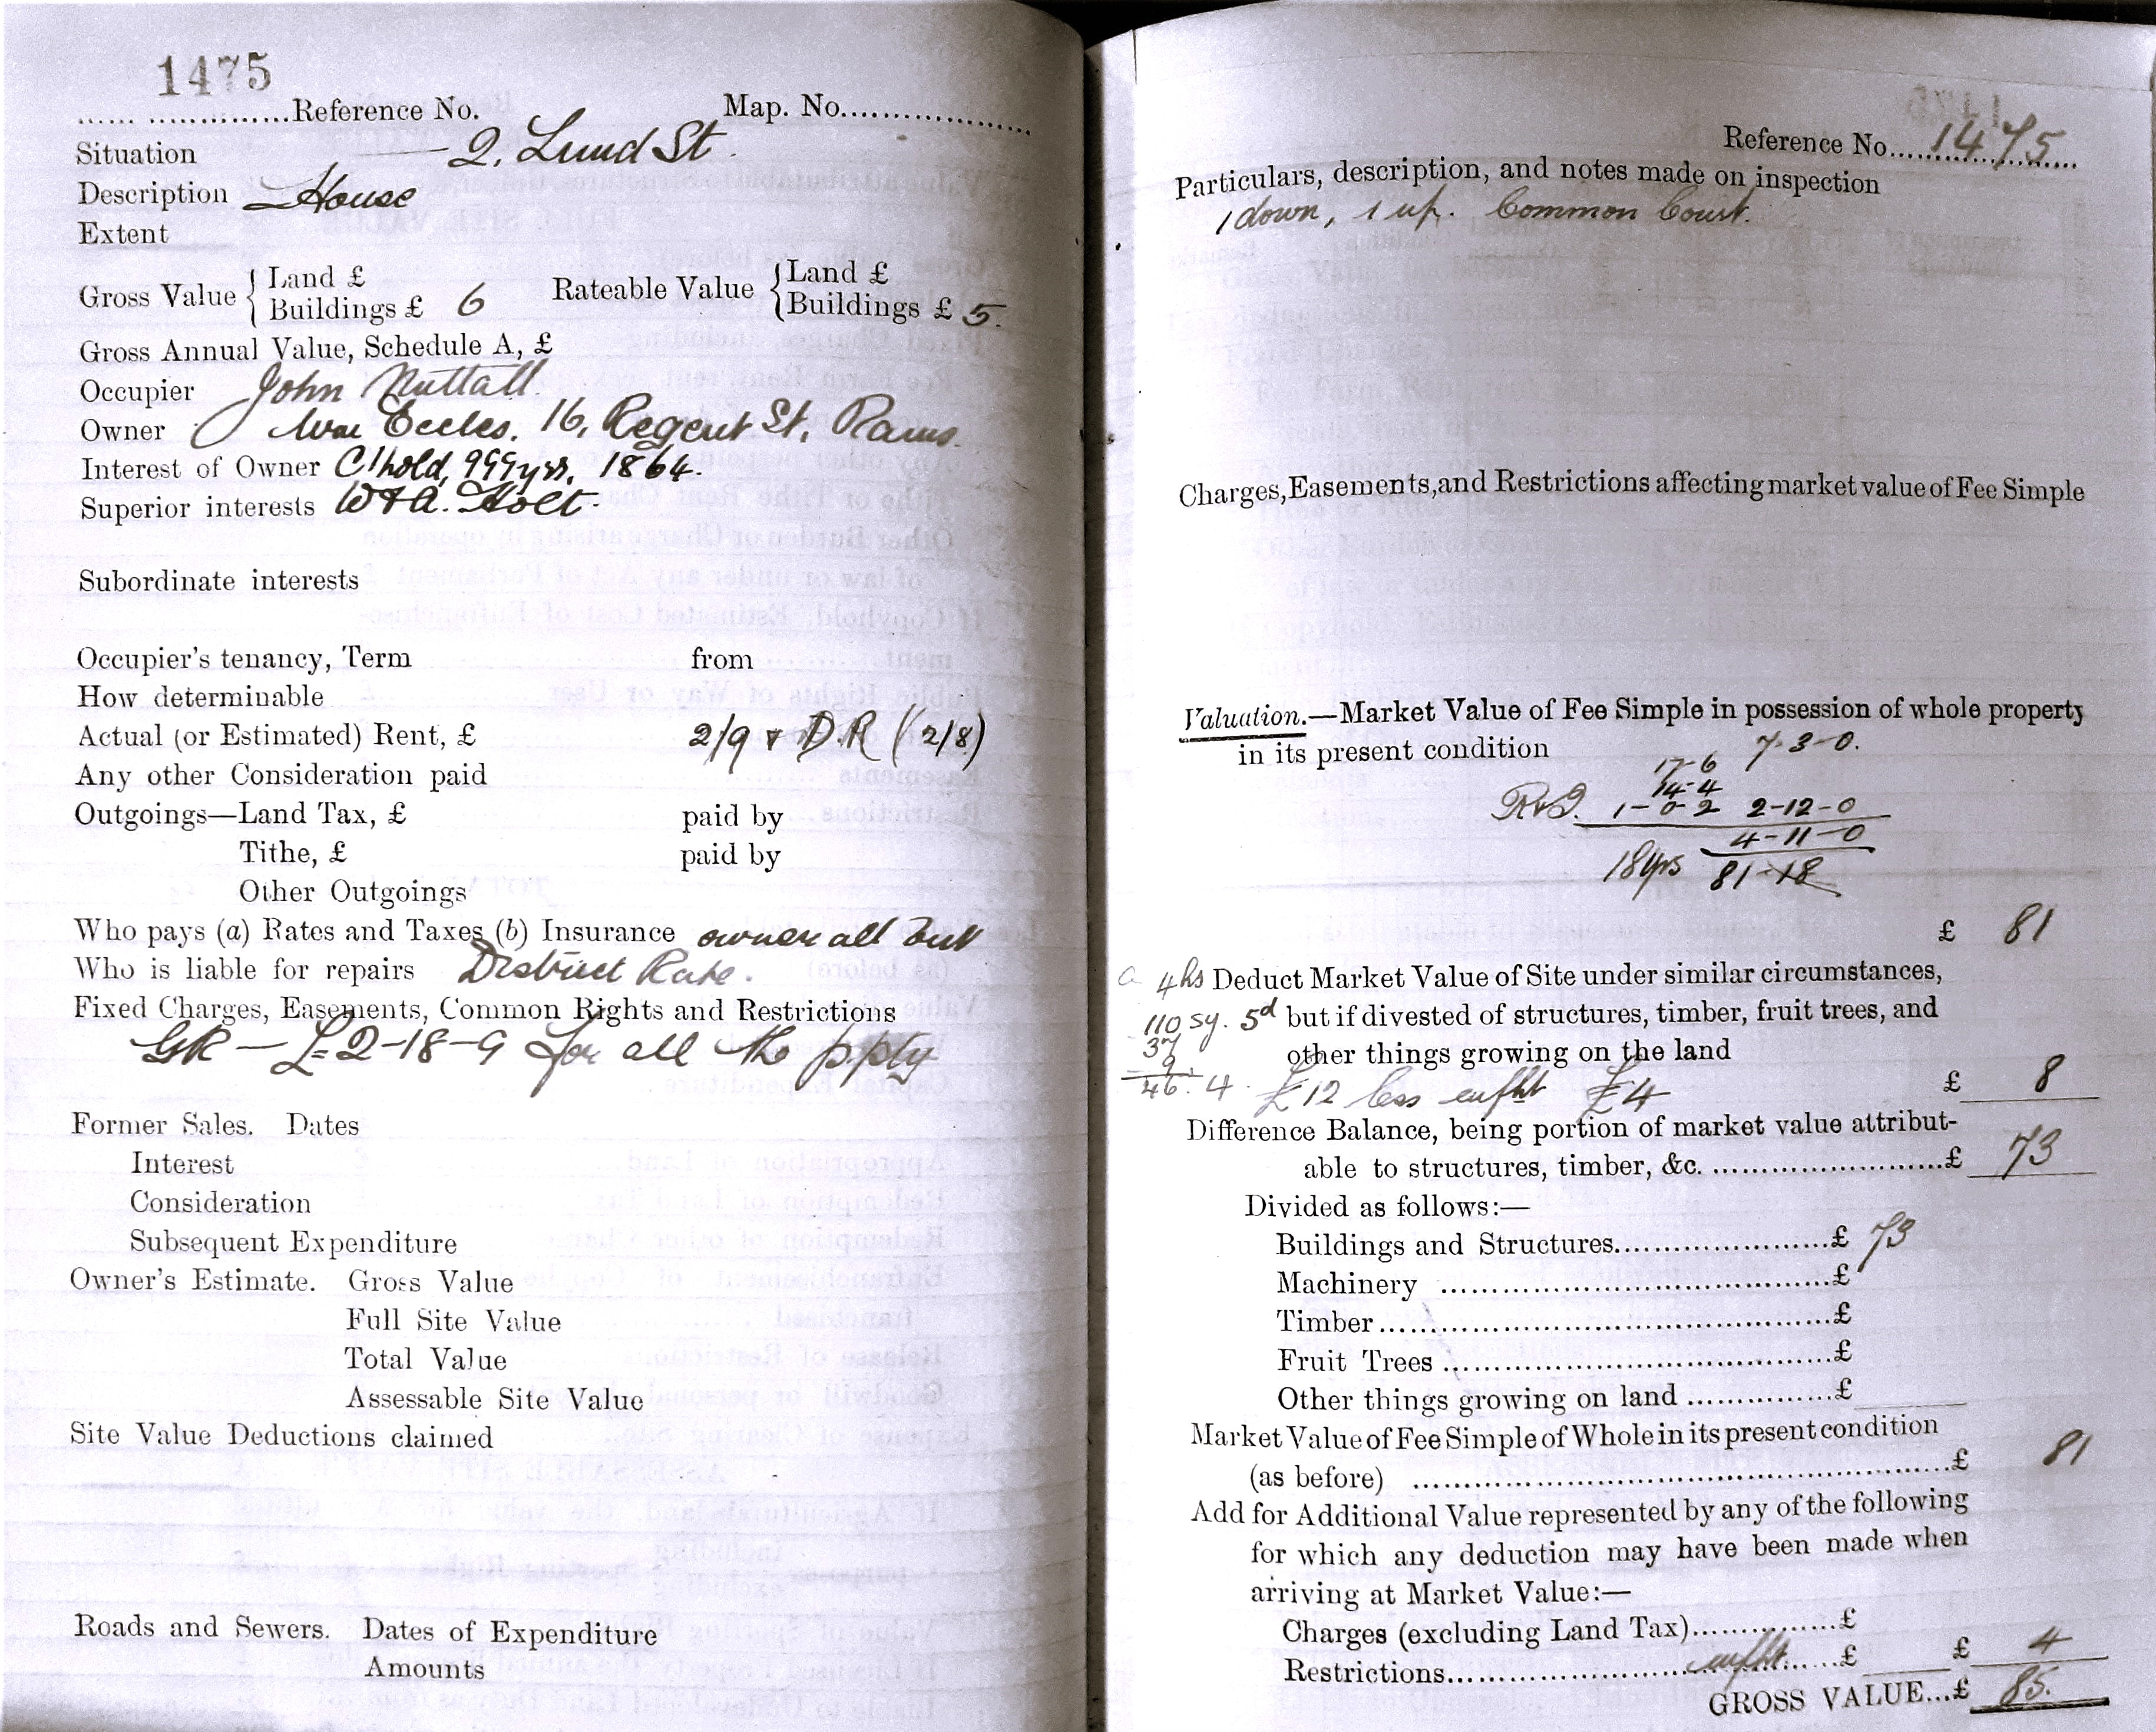 1475
...... ..............Reference No. Map. No..................
Situation 2, Lund St.
Description House
Extent
Gross Value { Land £
Buildings £ 6
Rateable Value { Land £
Buildings £ 5.
Gross Annual Value, Schedule A, £
Occupier John Nuttall.
Owner Wm Eccles. 16, Regent St. Rams.
Interest of Owner C'hold, 999 yrs, 1864.
Superior interests W & A. Holt.
Subordinate interests
Occupier's tenancy, Term from
How determinable
Actual (or Estimated) Rent, £ 2/9 & D.R (2/8)
Any other Consideration paid
Outgoings—Land Tax, £ paid by
Tithe, £ paid by
Other Outgoings
Who pays (a) Rates and Taxes (b) Insurance owner all but
Who is liable for repairs District Rate.
Fixed Charges, Easements, Common Rights and Restrictions
GR — £2-18-9 for all the ppty
Former Sales. Dates
Interest
Consideration
Subsequent Expenditure
Owner's Estimate. Gross Value
Full Site Value
Total Value
Assessable Site Value
Site Value Deductions claimed
Roads and Sewers. Dates of Expenditure
Amounts
Reference No. 1475
Particulars, description, and notes made on inspection
1 down, 1 up. Common Court.
Charges, Easements, and Restrictions affecting market value of Fee Simple
Valuation.—Market Value of Fee Simple in possession of whole property
in its present condition 7-3-0.
17-6
14-4
1-0-2 2-12-0
4-11-0
18 yrs 81-18
£ 81
4 hs Deduct Market Value of Site under similar circumstances,
110 sy. 5d but if divested of structures, timber, fruit trees, and
37 other things growing on the land
9
46. 4. £12 less enfht £4 £ 8
Difference Balance, being portion of market value attribut-
able to structures, timber, &c. .........................£ 73
Divided as follows:—
Buildings and Structures.......................£ 73
Machinery .......................................£
Timber.............................................£
Fruit Trees .......................................£
Other things growing on land ..............£
Market Value of Fee Simple of Whole in its present condition
(as before) ......................................................£ 81
Add for Additional Value represented by any of the following
for which any deduction may have been made when
arriving at Market Value:—
Charges (excluding Land Tax)................£
Restrictions.............enfht.......£ £ 4
GROSS VALUE...£ 85.